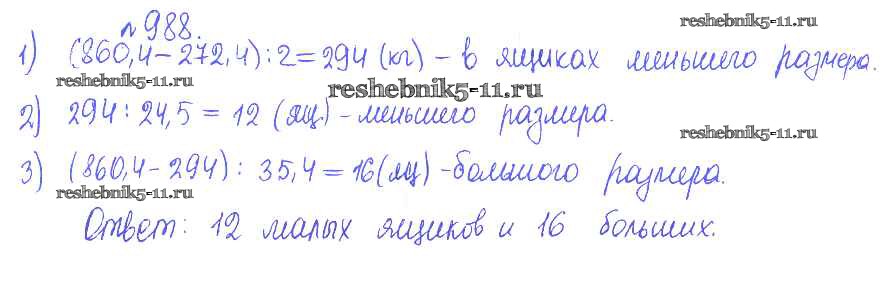 №988.
reshebnik5-11.ru
1) (860,4-272,4):2=294 (кг) - в ящиках меньшего размера.
reshebnik5-11.ru
reshebnik5-11.ru
2) 294:24,5 = 12 (ящ) - меньшего размера.
reshebnik5-11.ru
3) (860,4-294): 35,4=16(ящ) - большого размера.
reshebnik5-11.ru
Ответ: 12 малых ящиков и 16 больших.